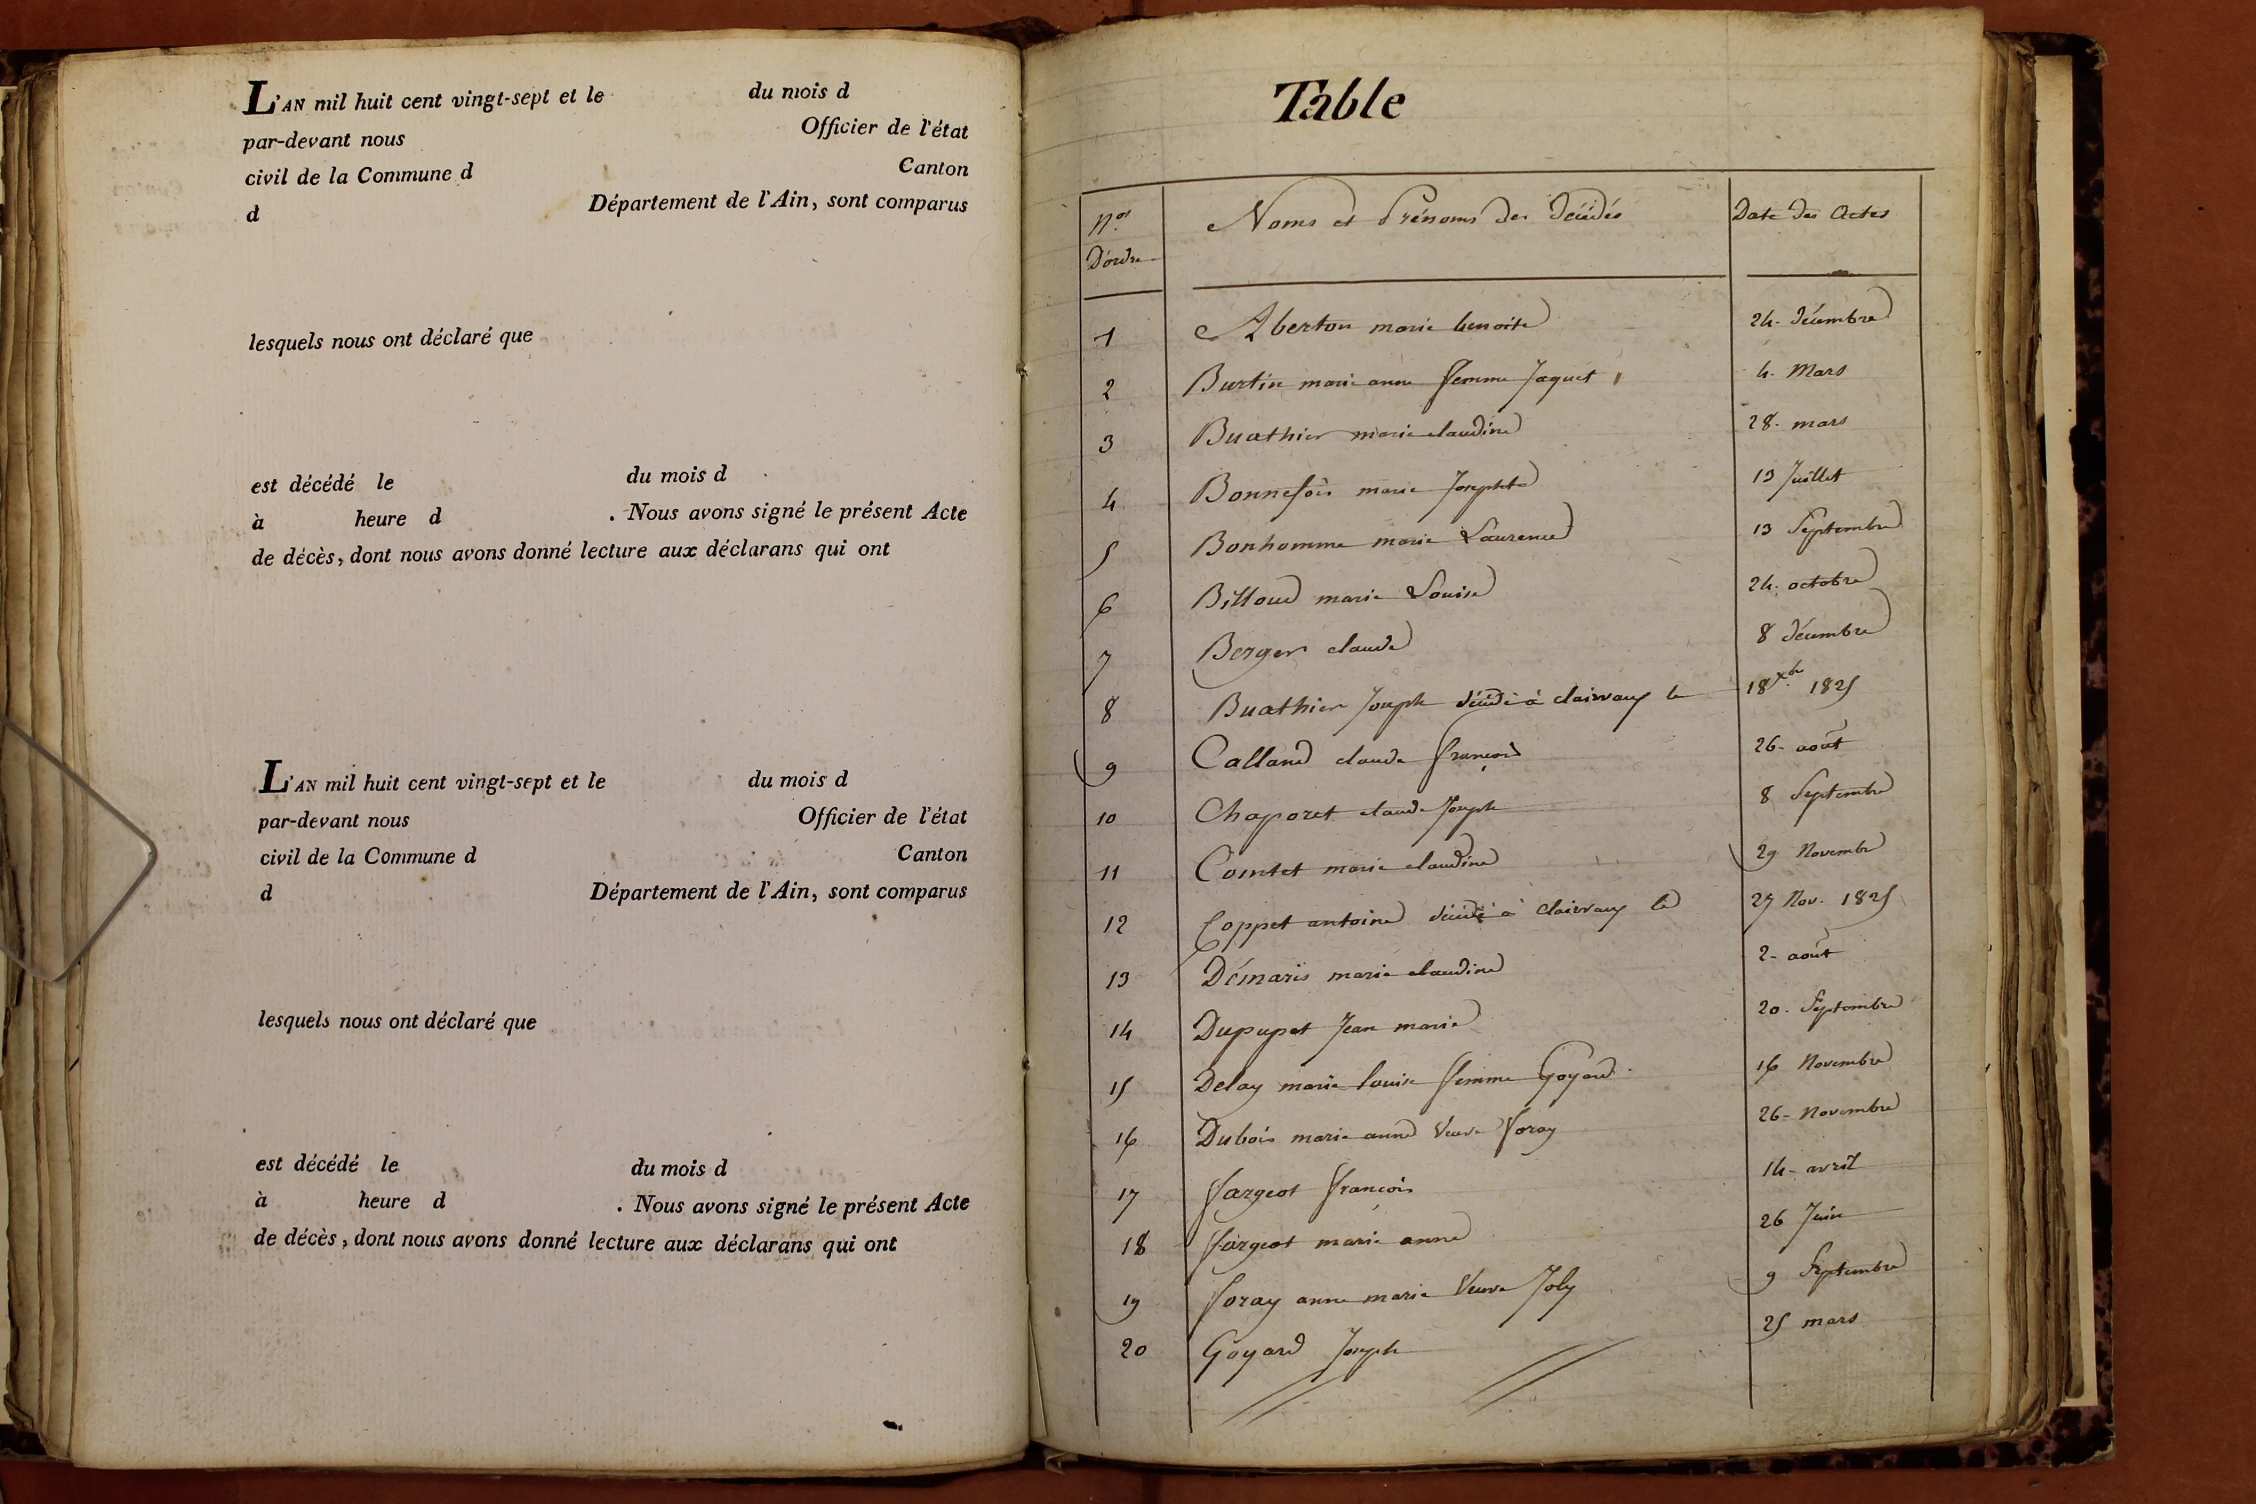 L'AN mil huit cent vingt-sept et le du mois d
par-devant nous Officier de l'état
civil de la Commune d Canton
d Département de l'Ain, sont comparus
lesquels nous ont déclaré que
est décédé le du mois d
à heure d . Nous avons signé le présent Acte
de décès, dont nous avons donné lecture aux déclarans qui ont
L'AN mil huit cent vingt-sept et le du mois d
par-devant nous Officier de l'état
civil de la Commune d Canton
d Département de l'Ain, sont comparus
lesquels nous ont déclaré que
est décédé le du mois d
à heure d . Nous avons signé le présent Acte
de décès, dont nous avons donné lecture aux déclarans qui ont
Table
Nos D'ordre Noms et Prénoms des Décédés Date des Actes
1 Aberton marie benoite 24. décembre
2 Burtin marie anne femme Jaquet 4. Mars
3 Buathier marie claudine 28. mars
4 Bonnefois marie Josephte 13 Juillet
5 Bonhomme marie Laurence 13 Septembre
6 Billoud marie Louise 24. octobre
7 Berger claude 8 décembre
8 Buathier Joseph décédé à clairvaux le 18 Xbre 1825
9 Calland claude françois 26. août
10 Chaporet claude Joseph 8 Septembre
11 Comtet marie claudine 29 Novembre
12 Coppet antoine décédé à Clairvaux le 27 Nov. 1825
13 Démaris marie claudine 2. août
14 Dupupet Jean marie 20. Septembre
15 Delay marie louise femme Goyard 16 Novembre
16 Dubois marie anne Veuve foray 26. Novembre
17 fargeot françois 14. avril
18 fargeot marie anne 26 Juin
19 foray anne marie Veuve Joly 9 Septembre
20 Goyard Joseph 25 mars